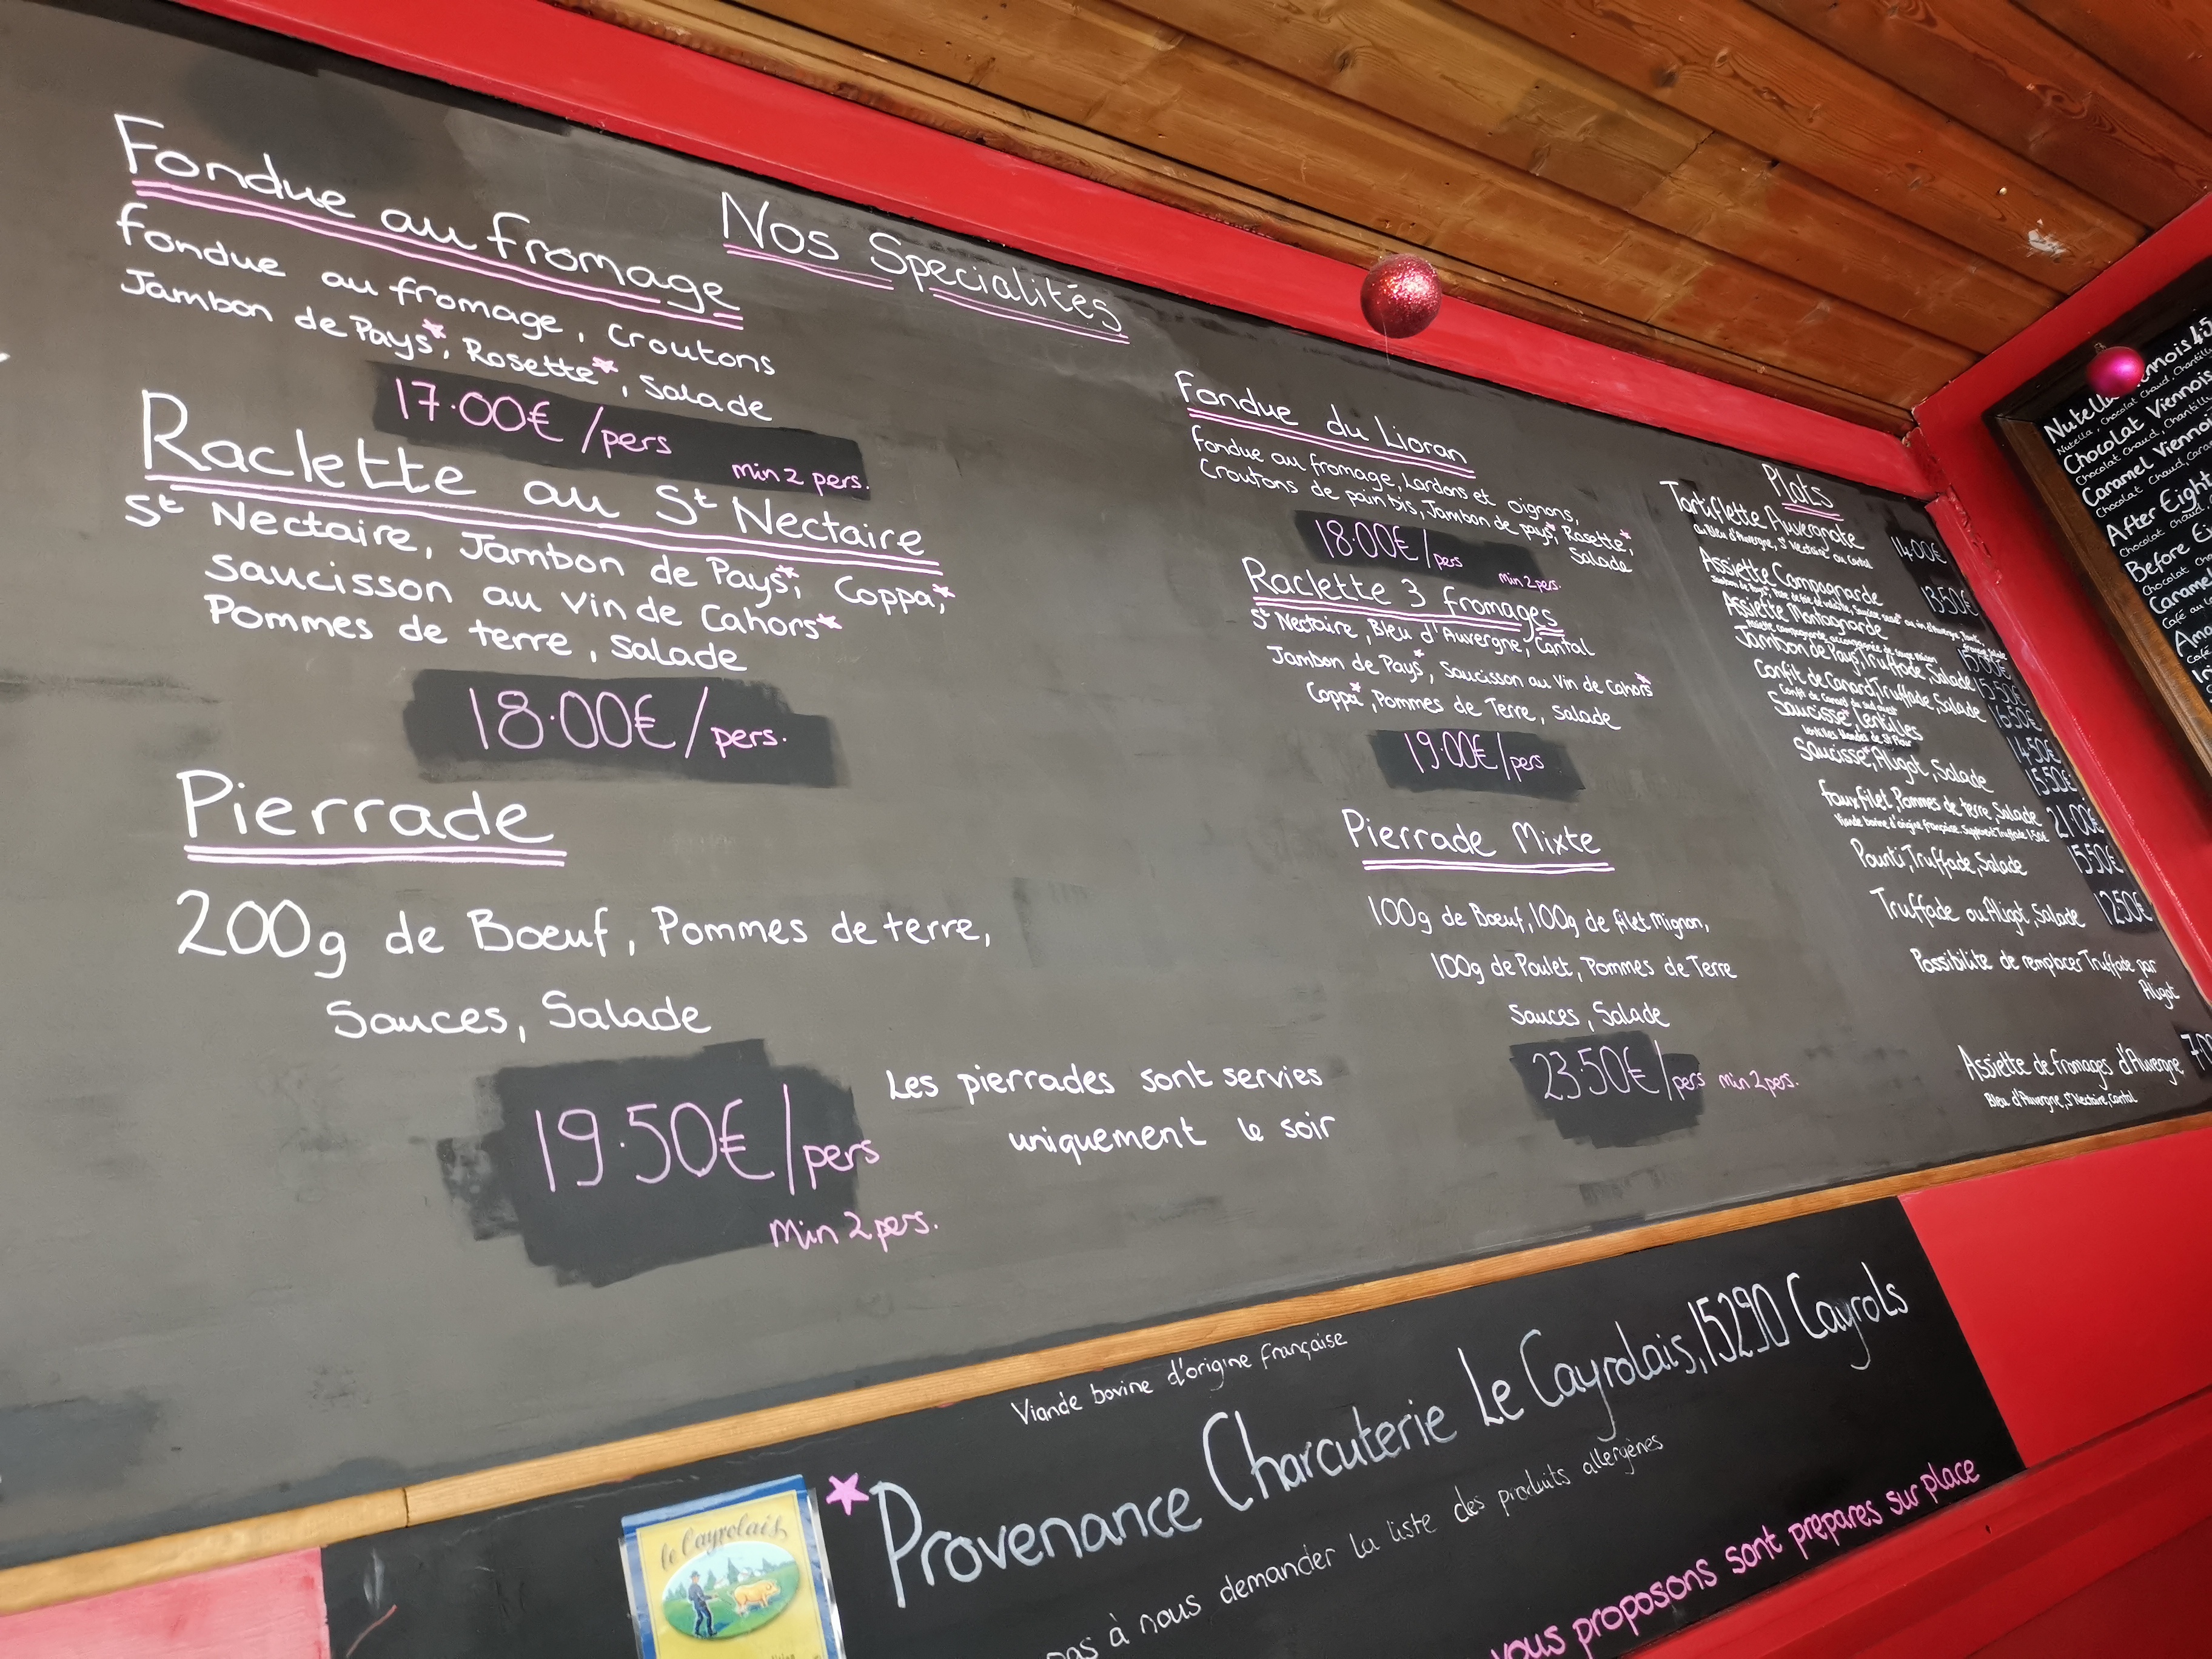 Nos Specialités
Fondue au fromage
fondue au fromage, croutons
Jambon de Pays*, Rosette*, Salade
17.00€/pers
min 2 pers.
Raclette au St Nectaire
St Nectaire, Jambon de Pays*, Coppa*,
saucisson au vin de Cahors*
Pommes de terre, salade
18.00€/pers.
Pierrade
200g de Boeuf, Pommes de terre,
Sauces, Salade
19.50€/pers
Min 2 pers.
Les pierrades sont servies
uniquement le soir
Fondue du Lioran
fondue au fromage, Lardons et oignons,
Croutons de pain bis, Jambon de pays*, Rosette*,
Salade
18.00€/pers
min 2 pers.
Raclette 3 fromages
St Nectaire, Bleu d'Auvergne, Cantal
Jambon de Pays*, Saucisson au Vin de Cahors*
Coppa*, Pommes de Terre, Salade
19.00€/pers
Pierrade Mixte
100g de Boeuf, 100g de filet Mignon,
100g de Poulet, Pommes de Terre
Sauces, Salade
23.50€/pers min 2 pers.
Plats
Tartiflette Auvergnate 14.00€
au Bleu d'Auvergne, St Nectaire ou Cantal
Assiette Campagnarde 13.50€
Assiette Montagnarde
Jambon de Pays, Truffade, Salade 15.50€
Confit de Canard, Truffade, Salade 16.50€
Confit de Canard du sud ouest
Saucisse*, Lentilles 14.50€
Lentilles blondes de St Flour
Saucisse*, Aligot, Salade 15.50€
faux filet, Pommes de terre, Salade 21.00€
Viande bovine d'origine française. Supplément Truffade 1.50€
Pounti, Truffade, Salade 15.50€
Truffade ou Aligot, Salade 12.50€
Possibilite de remplacer Truffade par
Aligot
Assiette de fromages d'Auvergne
Bleu d'Auvergne, St Nectaire, Cantal
Nutella
Chocolat Viennois
Caramel Viennois
After Eight
Before
Caramel
Viande bovine d'origine française
*Provenance Charcuterie Le Cayrolais, 15290 Cayrols
pas à nous demander la liste des produits allergènes
vous proposons sont prepares sur place
le Cayrolais